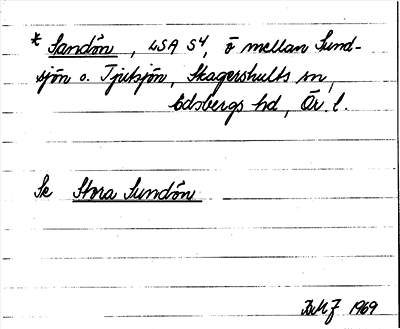 * Sandön, LSA S4, ö mellan Sund-
sjön o. Tjutsjön, Skagershults sn,
Edsbergs hd, Ör. l.
Se Stora Sundön
1969